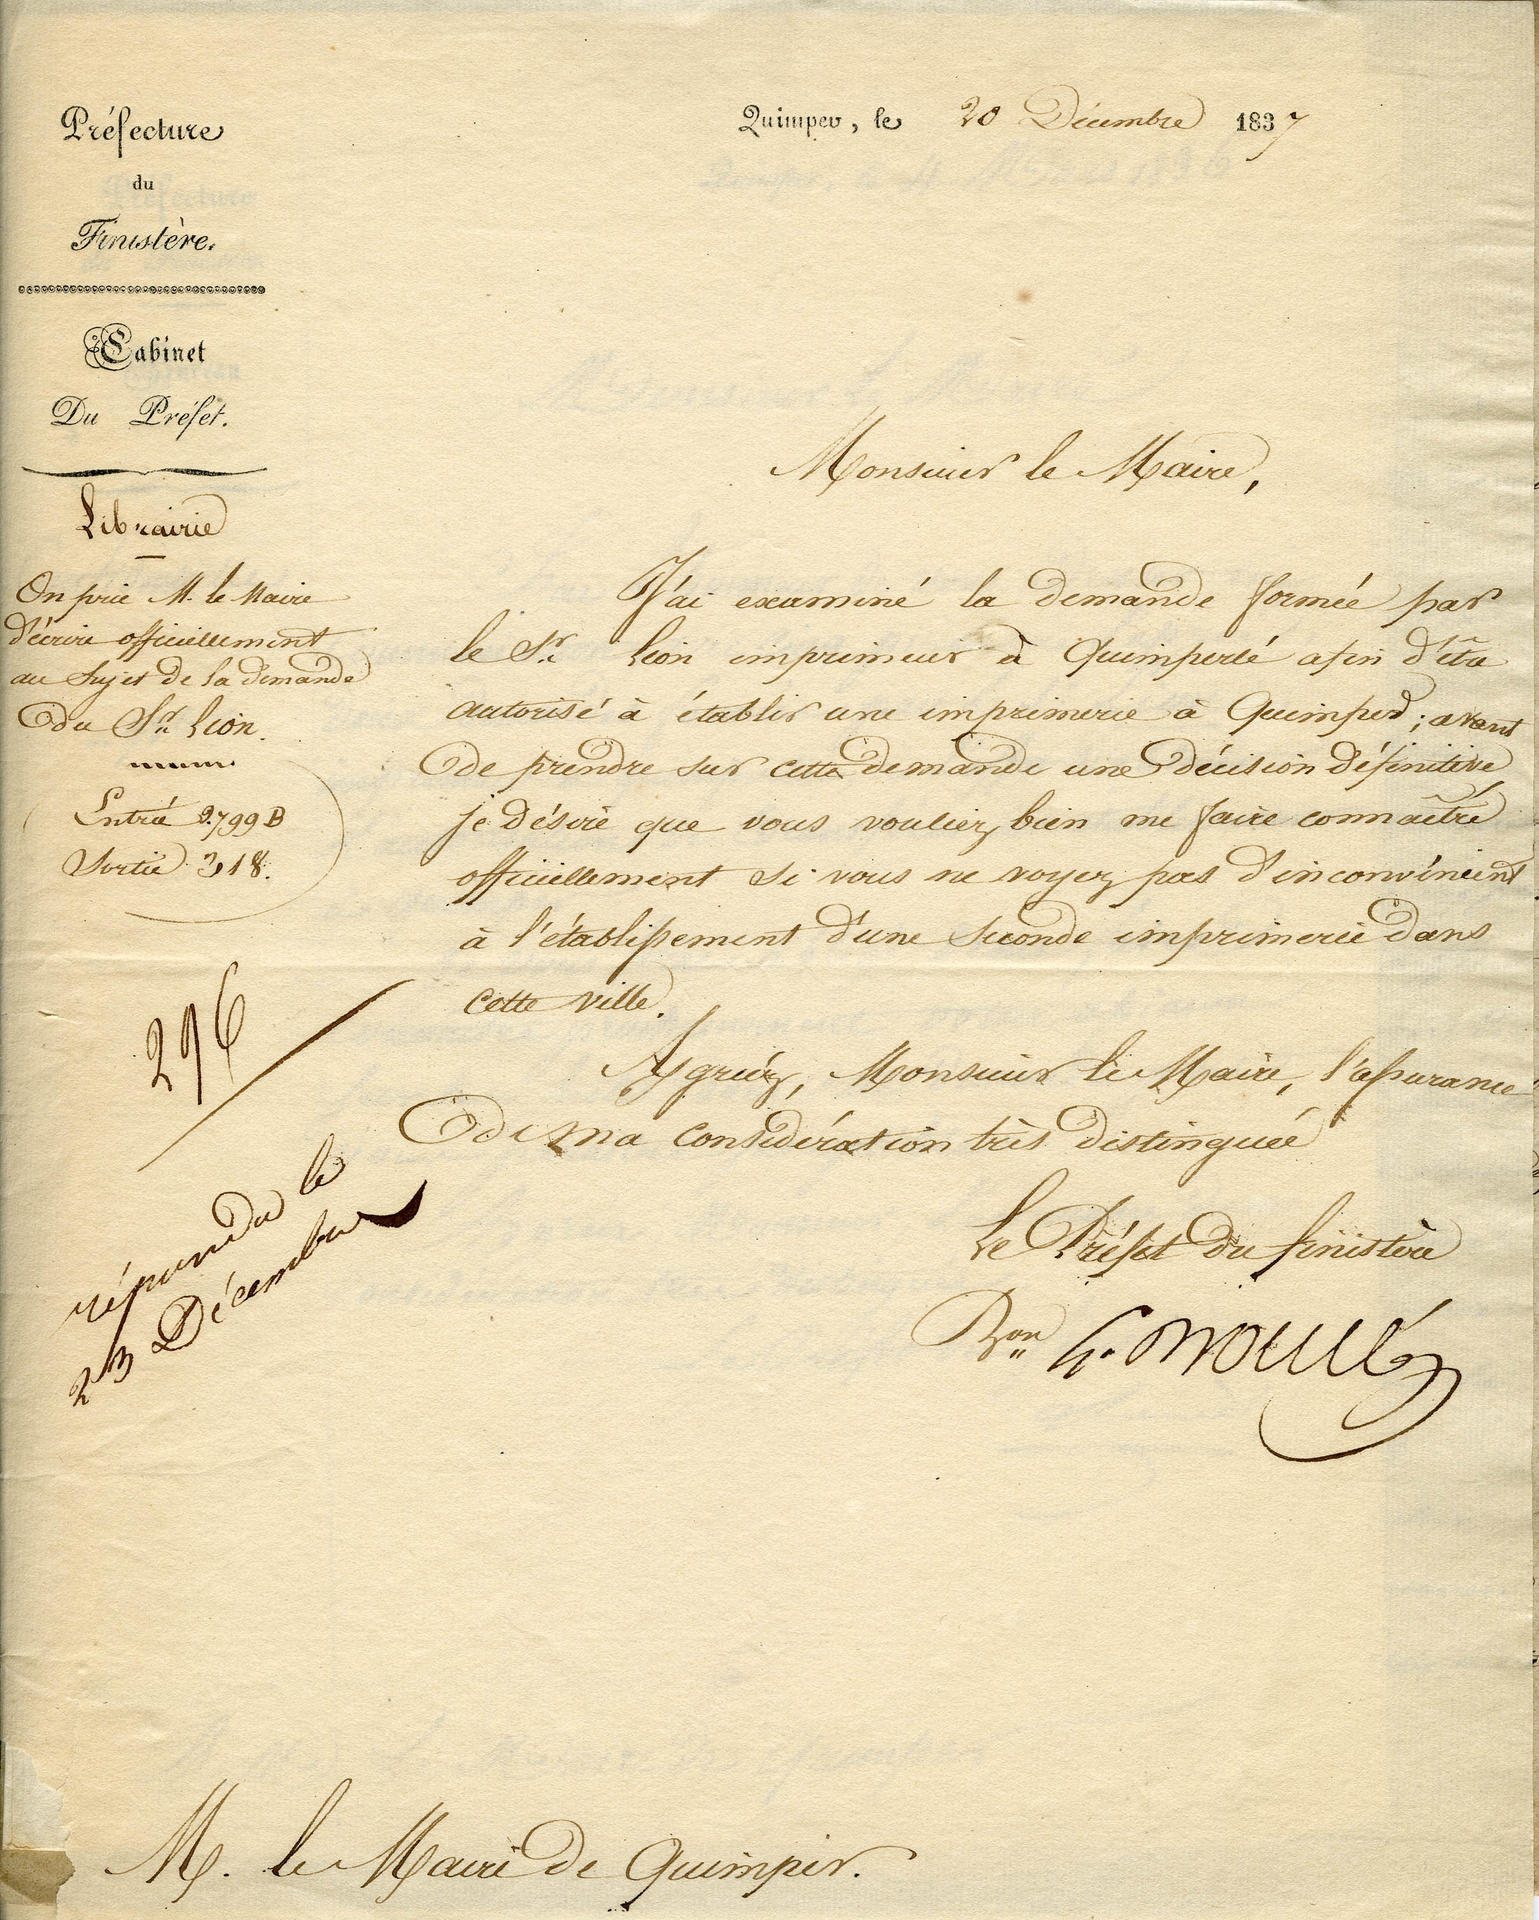 Préfecture
du
Finistère.
Cabinet
Du Préfet.
Librairie
On prie M. le Maire
d'écrire officiellement
au sujet de la demande
du Sr. Léon.
Entrée 2.799 B
Sortie 318.
296
répondu le
23 Décembre
Quimper, le 20 Décembre 1837
Monsieur le Maire,
J'ai examiné la demande formée par
le Sr. Léon imprimeur à Quimperlé afin d'être
autorisé à établir une imprimerie à Quimper ; avant
de prendre sur cette demande une décision définitive
je désire que vous vouliez bien me faire connaître
officiellement si vous ne voyez pas d'inconvénient
à l'établissement d'une seconde imprimerie dans
cette ville.
Agréez, Monsieur le Maire, l'assurance
de ma considération très distinguée
Le Préfet du finistère
Bon
M. le Maire de Quimper.